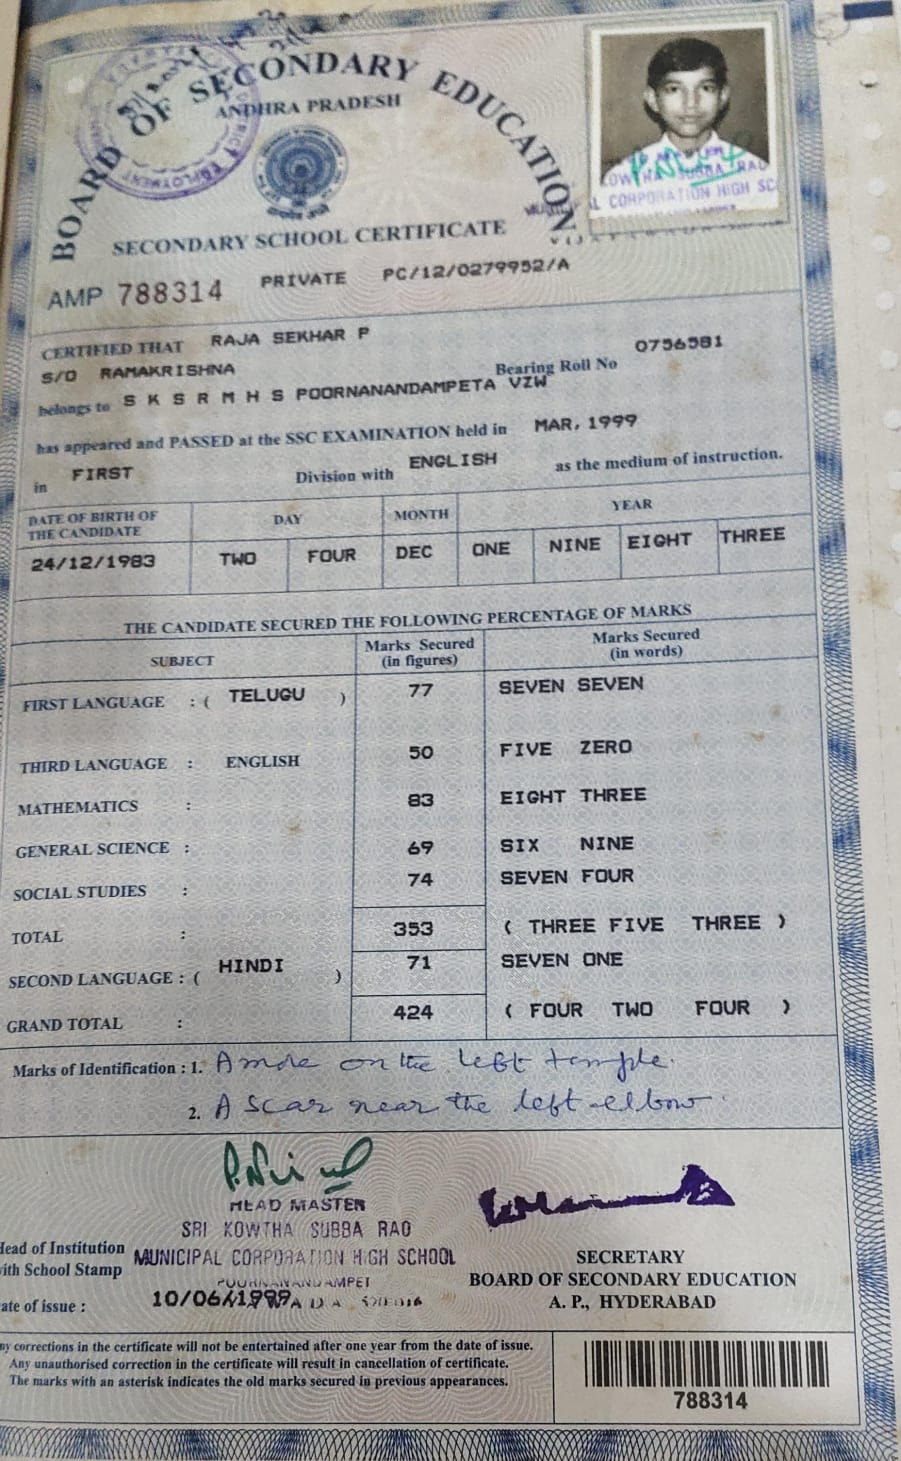 BOARD OF SECONDARY EDUCATION
ANDHRA PRADESH
SECONDARY SCHOOL CERTIFICATE
AMP 788314 PRIVATE PC/12/0279952/A
CERTIFIED THAT RAJA SEKHAR P
S/O RAMAKRISHNA Bearing Roll No 0756581
belongs to S K S R M H S POORNANANDAMPETA VZW
has appeared and PASSED at the SSC EXAMINATION held in MAR, 1999
in FIRST Division with ENGLISH as the medium of instruction.
DATE OF BIRTH OF THE CANDIDATE DAY MONTH YEAR
24/12/1983 TWO FOUR DEC ONE NINE EIGHT THREE
THE CANDIDATE SECURED THE FOLLOWING PERCENTAGE OF MARKS
SUBJECT Marks Secured (in figures) Marks Secured (in words)
FIRST LANGUAGE : ( TELUGU ) 77 SEVEN SEVEN
THIRD LANGUAGE : ENGLISH 50 FIVE ZERO
MATHEMATICS : 83 EIGHT THREE
GENERAL SCIENCE : 69 SIX NINE
SOCIAL STUDIES : 74 SEVEN FOUR
TOTAL : 353 ( THREE FIVE THREE )
SECOND LANGUAGE : ( HINDI ) 71 SEVEN ONE
GRAND TOTAL : 424 ( FOUR TWO FOUR )
Marks of Identification : 1. A mole on the left temple.
2. A scar near the left elbow.
HEAD MASTER
SRI KOWTHA SUBBA RAO
MUNICIPAL CORPORATION HIGH SCHOOL
POORNANANDAMPET
Head of Institution
with School Stamp
Date of issue : 10/06/1999
SECRETARY
BOARD OF SECONDARY EDUCATION
A. P., HYDERABAD
Any corrections in the certificate will not be entertained after one year from the date of issue.
Any unauthorised correction in the certificate will result in cancellation of certificate.
The marks with an asterisk indicates the old marks secured in previous appearances.
788314